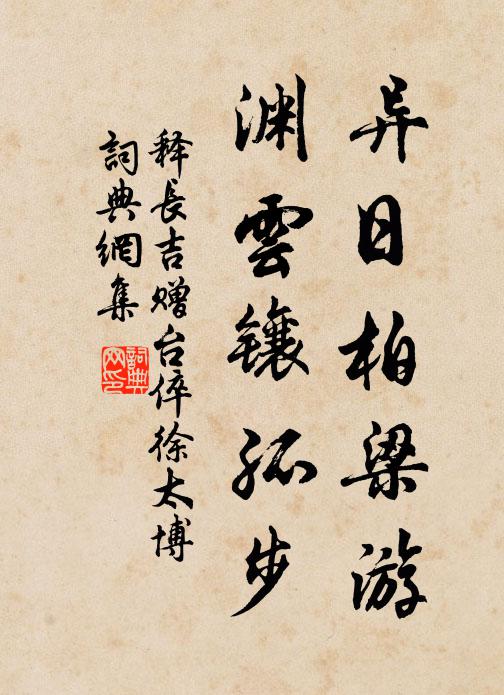 异日柏梁游
渊雲镶孤步
释長吉赠台倅徐太博
詞典網集
詞典网印